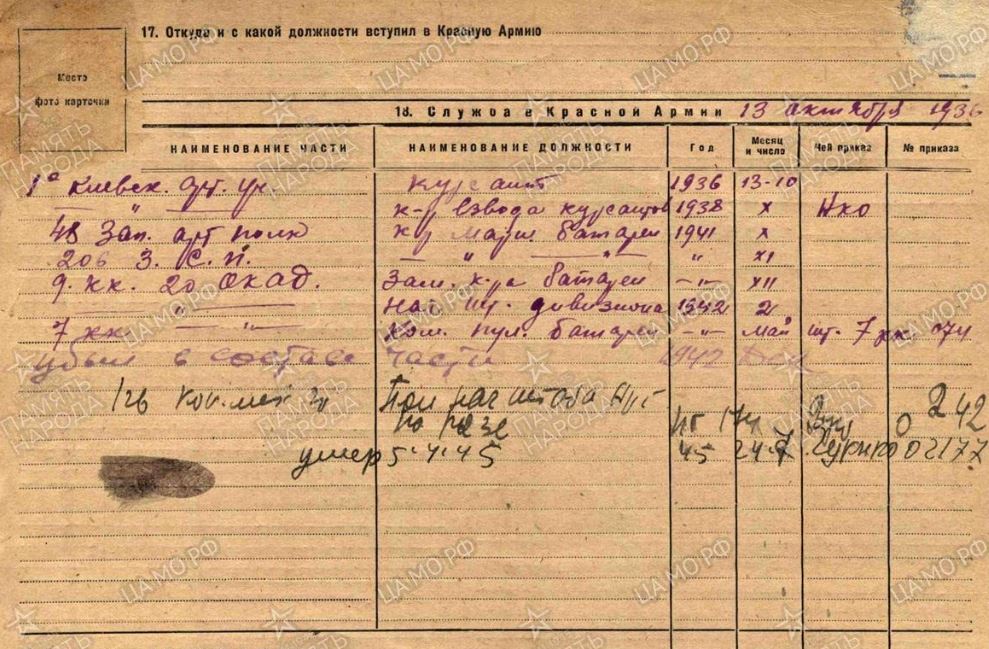 17. Откуда и с какой должности вступил в Красную Армию
Место
фото карточки
18. Служба в Красной Армии 13 октября 1936
НАИМЕНОВАНИЕ ЧАСТИ НАИМЕНОВАНИЕ ДОЛЖНОСТИ Год Месяц и число Чей приказ № приказа
1е Киевск. арт. уч. курсант 1936 13-10
— " — к-р взвода курсантов 1938 X НКО
48 Зап. арт полк к-р батареи 1941 X
206 З. С. П. — " — " — " XI
9. кк. 20 ОКАД. Зам. к-ра батареи — " — XII
— " — Нач шт. дивизиона 1942 2
7 кк — " — Ком. пул. батареи — " — май шт. 7 кк 074
убыл в составе части 1942
Пом нач штаба 242
умер 5.4.45 45 24.7 02177
ПАМЯТЬ НАРОДА
ЦАМО.РФ